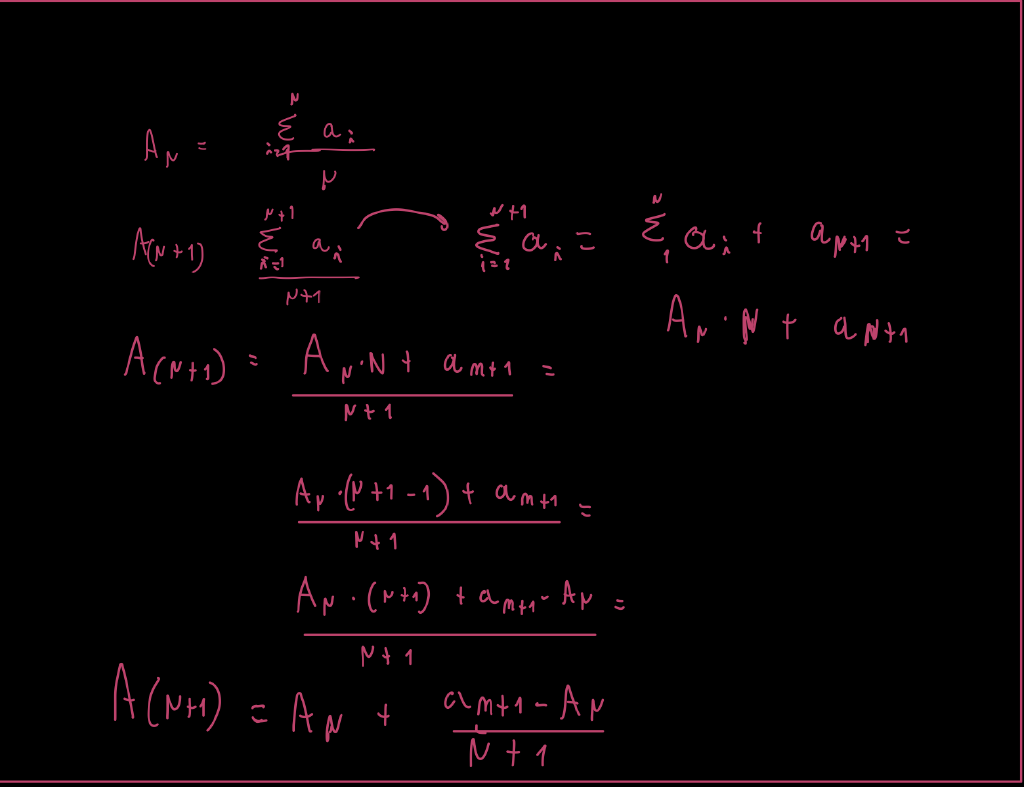 A_N = \frac{\sum_{i=1}^{N} a_i}{N}
A_{(N+1)} \frac{\sum_{i=1}^{N+1} a_i}{N+1} \sum_{i=1}^{N+1} a_i = \sum_{1}^{N} a_i + a_{N+1} =
A_N \cdot N + a_{N+1}
A_{(N+1)} = \frac{A_N \cdot N + a_{n+1}}{N+1} =
\frac{A_N \cdot (N+1-1) + a_{n+1}}{N+1} =
\frac{A_N \cdot (N+1) + a_{n+1} - A_N}{N+1} =
A_{(N+1)} = A_N + \frac{a_{n+1} - A_N}{N+1}